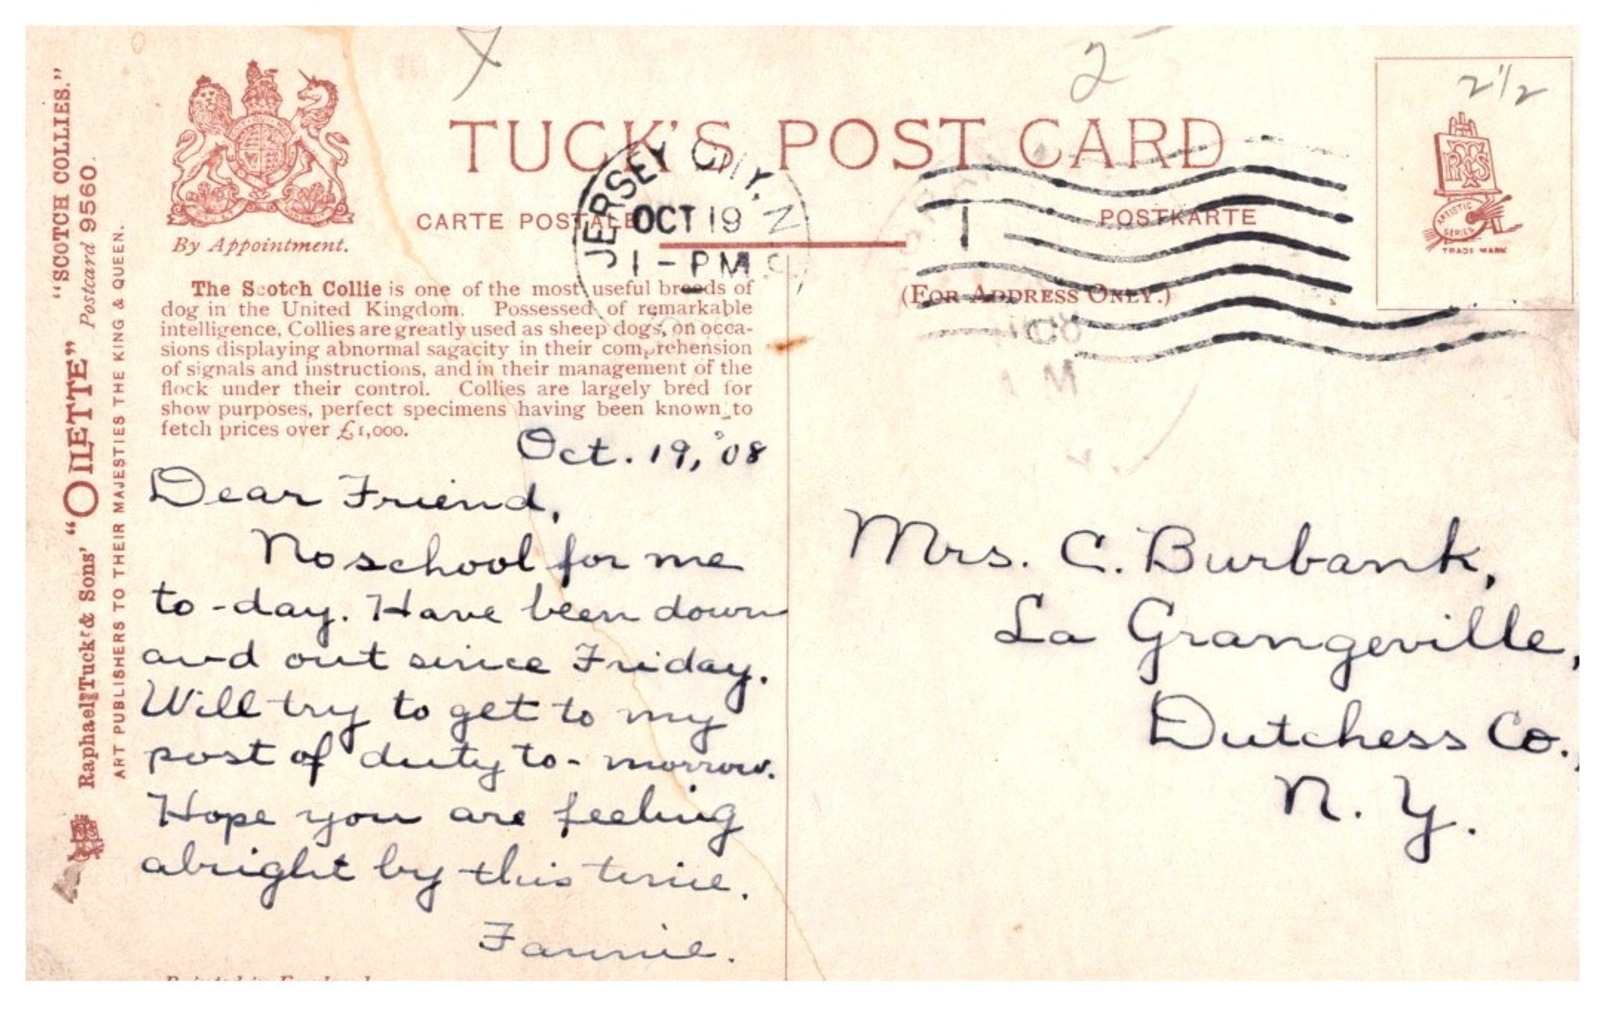 "SCOTCH COLLIES."
Raphael Tuck & Sons' "OILETTE" Postcard 9560.
ART PUBLISHERS TO THEIR MAJESTIES THE KING & QUEEN.
By Appointment.
TUCK'S POST CARD
CARTE POSTALE
POSTKARTE
(FOR ADDRESS ONLY.)
X
2
2 1/2
ARTISTIC
SERIES
TRADE MARK
JERSEY CITY, N
OCT 19
1 - PM
1
The Scotch Collie is one of the most useful breeds of
dog in the United Kingdom. Possessed of remarkable
intelligence, Collies are greatly used as sheep dogs, on occa-
sions displaying abnormal sagacity in their comprehension
of signals and instructions, and in their management of the
flock under their control. Collies are largely bred for
show purposes, perfect specimens having been known to
fetch prices over £1,000.
Oct. 19, '08
Dear Friend,
No school for me
to-day. Have been down
and out since Friday.
Will try to get to my
post of duty to-morrow.
Hope you are feeling
alright by this time.
Fannie.
Mrs. C. Burbank,
La Grangeville,
Dutchess Co.,
N. Y.